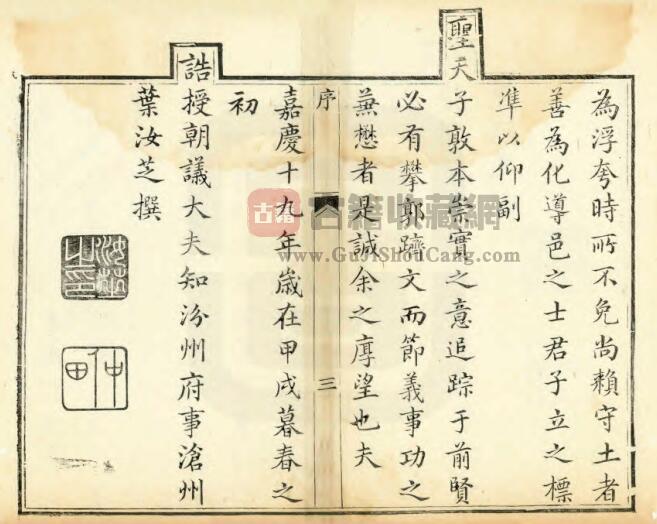 為浮夸時所不免尚賴守土者
善為化導邑之士君子立之標
準以仰副
聖天子敦本崇實之意追踪于前賢
必有攀郭躋文而節義事功之
蕪懋者是誠余之厚望也夫
序 三
嘉慶十九年歲在甲戌暮春之
初
誥授朝議大夫知汾州府事滄州
葉汝芝撰
汝芝之印
仲田
古籍 古籍收藏網
www.GuJiShouCang.com